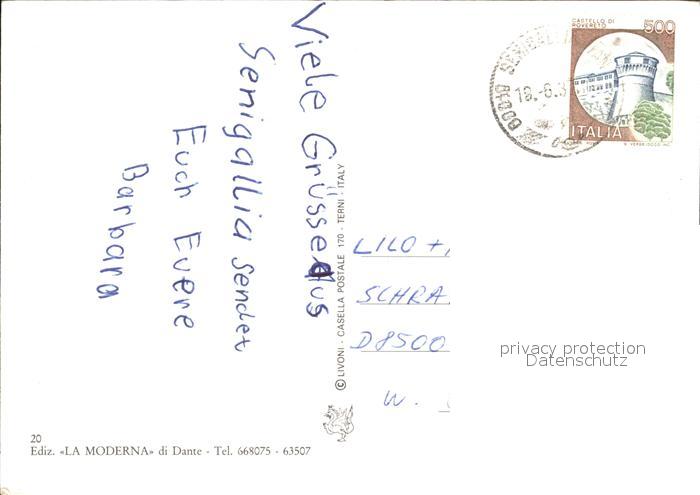 Viele Grüsse aus
Senigallia sendet
Euch Euere
Barbara
© LIVONI - CASELLA POSTALE 170 - TERNI - ITALY
LILO +
SCHRA
D8500
W.
CASTELLO DI
ROVERETO
500
ITALIA
SENIGALLIA
18.-6.
privacy protection
Datenschutz
20
Ediz. «LA MODERNA» di Dante - Tel. 668075 - 63507